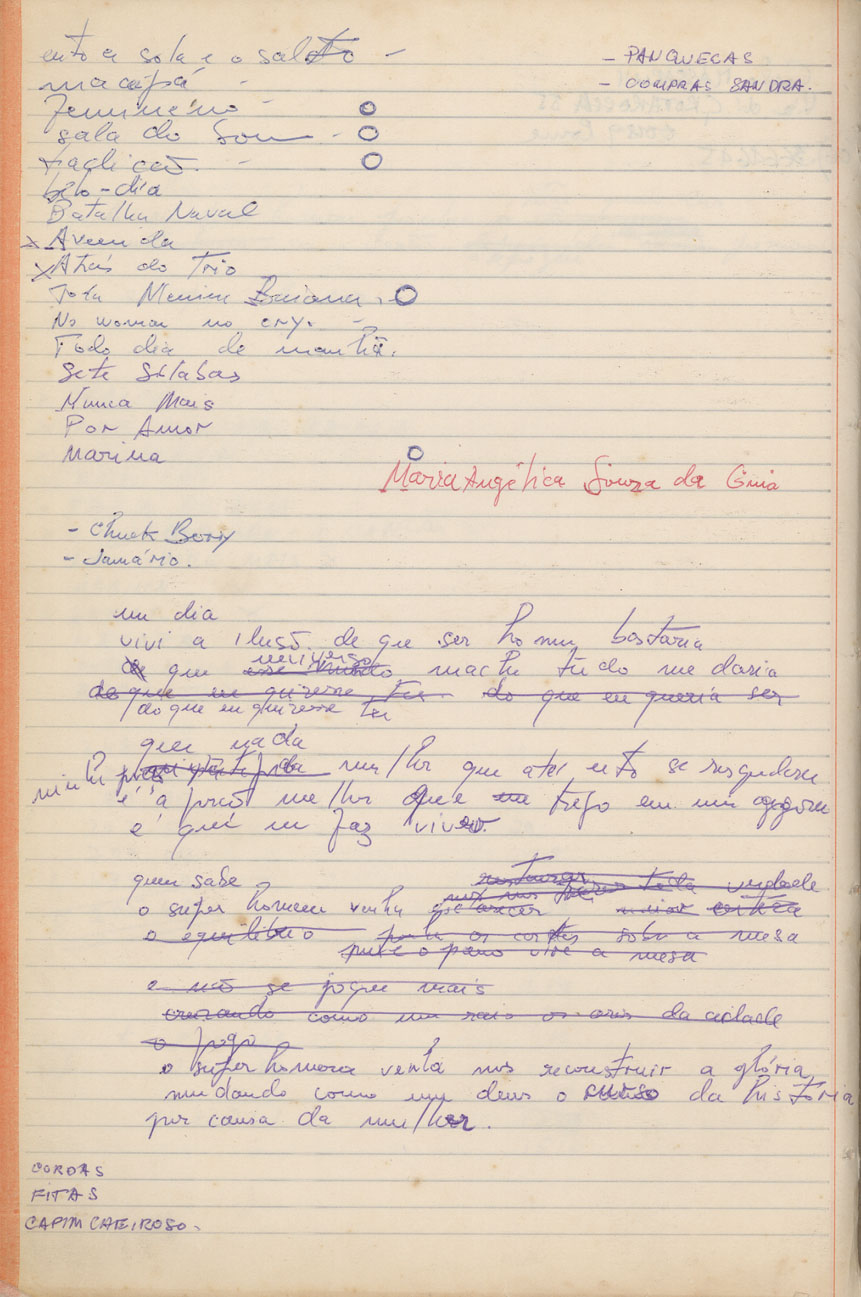 entre a sola e o salto -
- PANQUECAS
macapá -
- COMPRAS SANDRA.
Feminino -
sala do Som -
traficção. -
belo-dia
Batalha Naval
x Avenida
x Atrás do Trio
Toda Menina Baiana.
No woman no cry. -
Todo dia de manhã.
Sete Sílabas
Nunca Mais
Por Amor
Marina
Maria Angélica Souza da Guia
- Chuck Berry
- Januário.
um dia
vivi a ilusão de que ser homem bastaria
universo
de que esse mundo macho tudo me daria
do que eu quisesse ter do que eu queria ser
do que eu quisesse ter
que nada
minha porção mulher que até então se resguardara
é a porção melhor que trago em mim agora
é que me faz viver.
quem sabe
restaurar toda verdade
o super homem venha nos
o equilíbrio sobre a mesa
a mesa
e não se jogue mais
cruzando como um raio os ares da cidade
o jogo
o super homem venha nos reconstruir a glória
mudando como um deus o curso da história
por causa da mulher.
CORDAS
FITAS
CAPIM CHEIROSO.